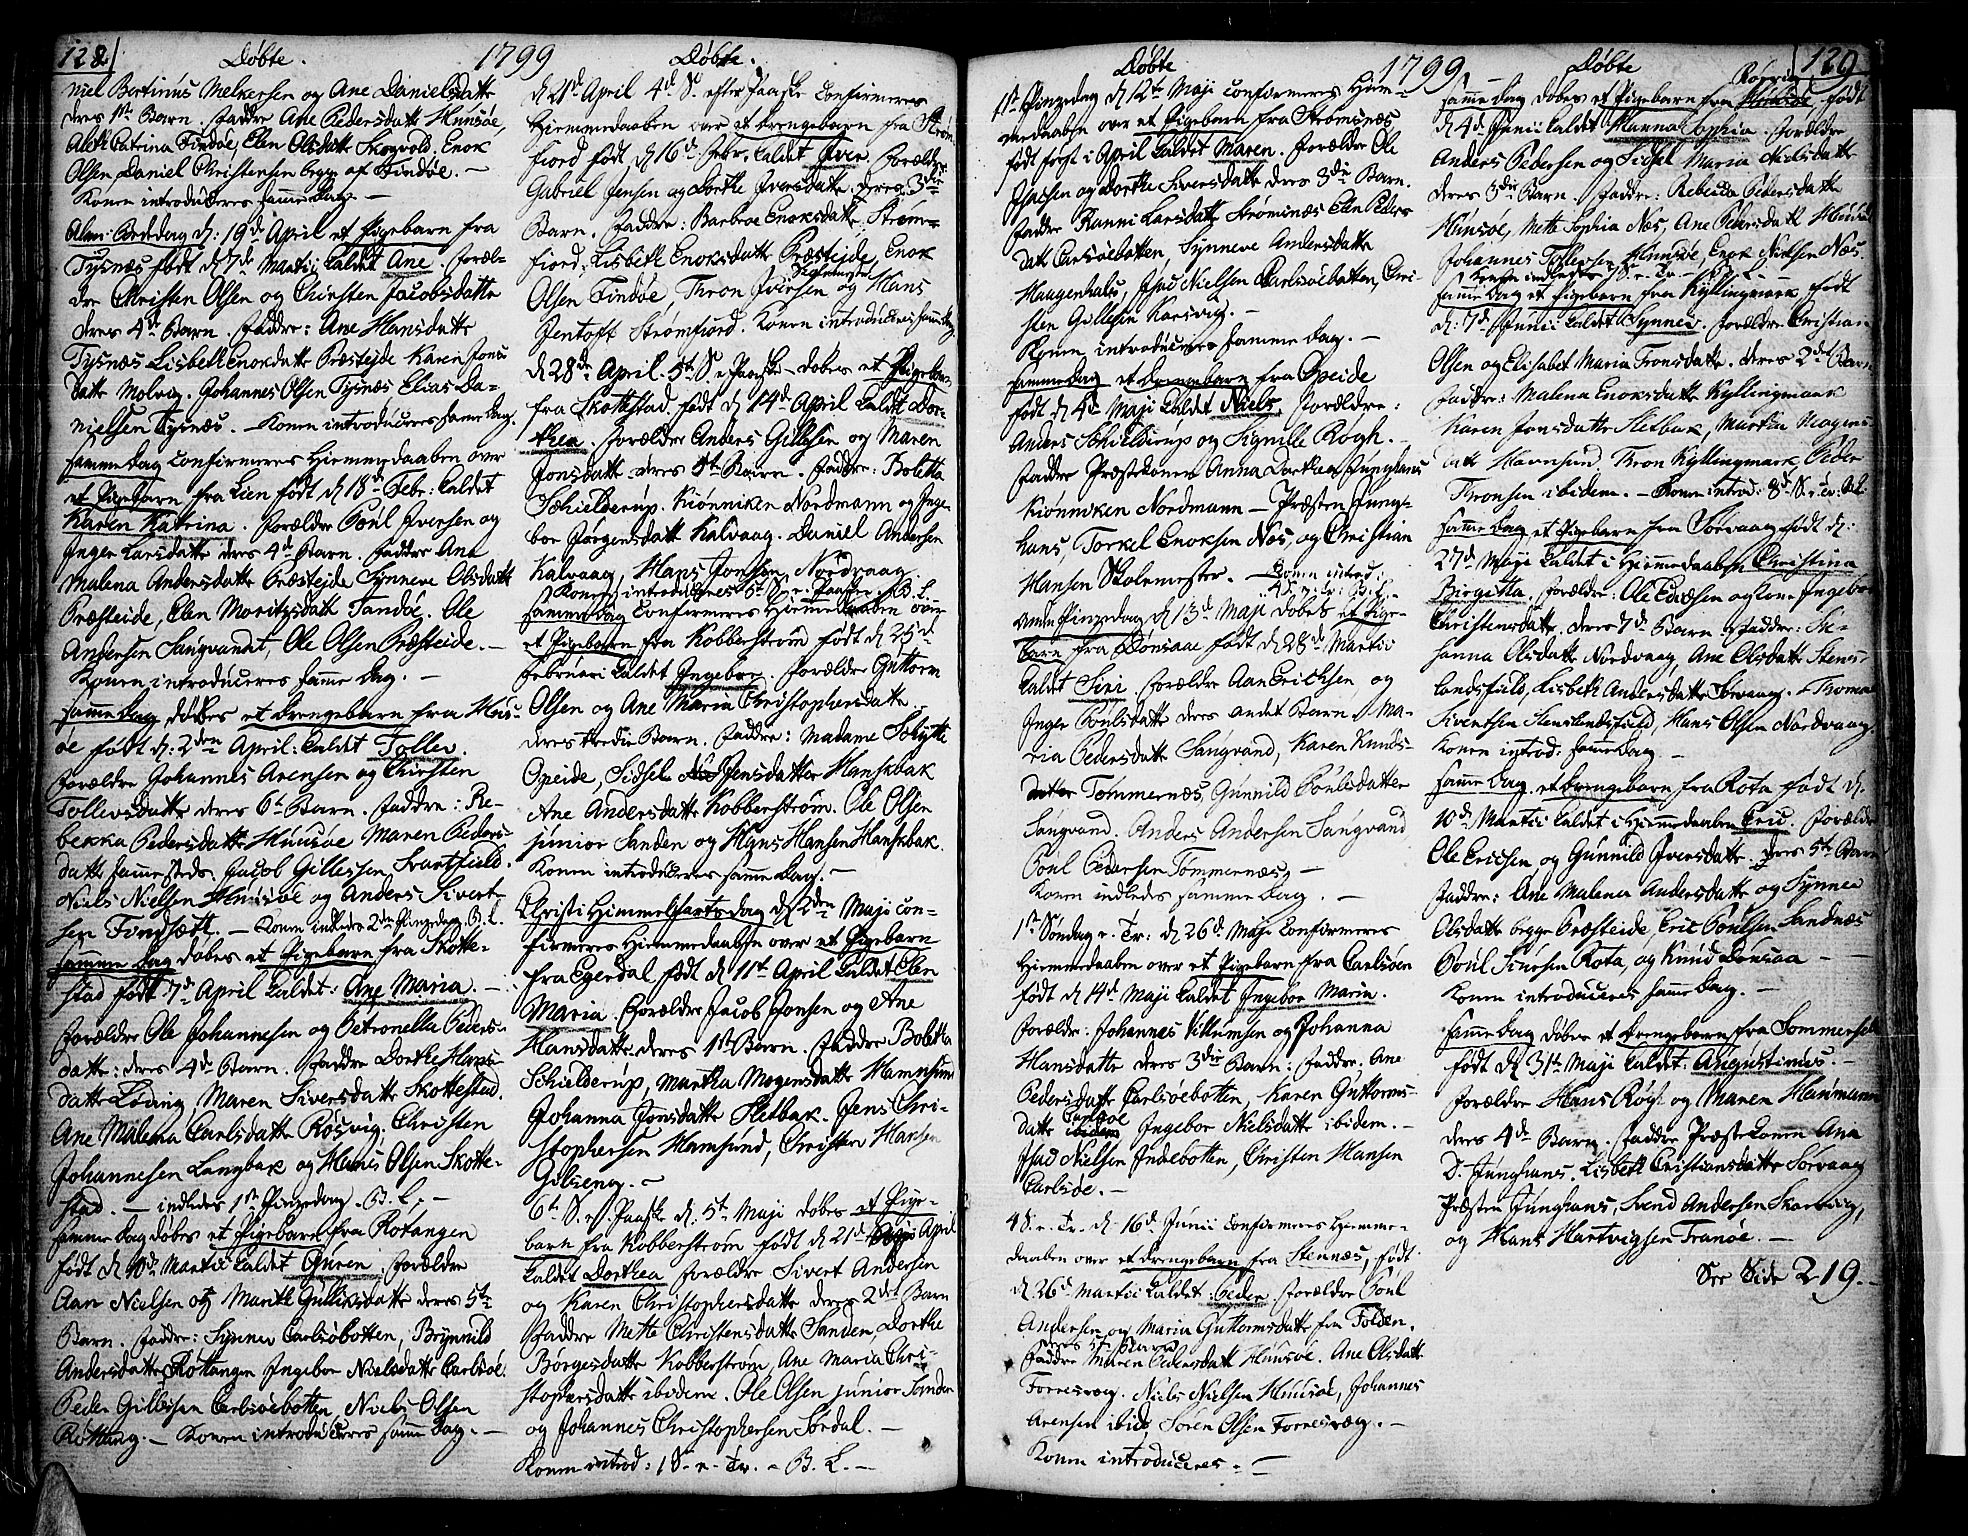 128
Døbte.
1799
Døbte.
niel Bertinus Melkersen og Ane Danielsdatte
deres 1st Barn. Faddre Ane Pedersdatte Huusøe,
Aleth Catrina Findøe, Elen Olsdatte Skogvold. Enok
Olsen Daniel Christensen begge af Findøe. —
Konen introduceres samme Dag. —
Alm: Bededag d: 19d April et Pigebarn fra
Tysnæs født d 7de Martii kaldet Ane. Foræl-
dre Christen Olsen og Chirsten Jacobsdatte
deres 4d Barn. Faddre: Ane Hansdatte
Tysnæs Lisbeth Enoksdatte Præsteide Karen Jons
datte Molvig. Johannes Olsen Tysnæs Elias Da-
nielsen Tysnæs. — Konen introduceres samme Dag.
samme Dag confirmeres Hiemmedaaben over
et Pigebarn fra Lien født d 18d Febr: kaldet
Karen Katrina. Forældre Poul Iversen og
Inger Larsdatte deres 4d Barn. Faddre Ane
Malena Andersdatte Præsteide Synneve Olsdatte
Præsteide, Elen Moritzsdatte Tandøe. Ole
Andersen Sangvandt, Ole Olsen Præsteide. —
Konen introduceres samme Dag. —
samme Dag døbes et Drengebarn fra Huus-
øe født d: 2den April: kaldet Tollev.
Forældre Johannes Arensen og Chirsten
Tollevsdatte deres 6t Barn. Faddre: Re-
bekka Pedersdatte Huusøe Maren Peders-
datte sammesteds. Jacob Gillessen Svartfield.
Niels Nielsen Huusøe og Anders Sivert-
sen Findsæt. — Konen indledes 2den Pinzedag. B. L.
samme Dag døbes et Pigebarn fra Skotte-
stad født 7d April kaldet: Ane Maria. —
Forældre Ole Johannesen og Petronella Peders-
datte: deres 4d Barn. Faddre Dorthe Hans-
datte Løding, Maren Siversdatte Skottestad.
Ane Malena Carlsdatte Røsvig; Christen
Johannesen Langbak og Hans Olsen Skotte-
stad. — indledes 1st Pinzedag. B. L. —
samme Dag døbes et Pigebarn fra Rotangen
født d 10d Martii kaldet Guren. Forældre
Aan Nielsen og Marithe Gulliksdatte deres 5te
Barn. Faddre: Synnev Carlsøbotten, Brynnild
Andersdatte Rottangen Ingebor Nielsdatte Carlsøe.
Peder Gillessen Carlsøebotten, Niels Olsen
Rottang. — Konen introduceres samme Dag. —
d 21d April 4d S. efter Paaske confirmeres
Hiemmedaaben over et Drengebarn fra Strøm-
fiord født d 16d Febr. kaldet Iver. Forældre
Gabriel Jensen og Dorthe Iversdatte. deres 3die
Barn. Faddre: Barbroe Enoksdatte, Strøm-
fiord, Lisbeth Enoksdatte Præsteide, Enok
Olsen Findøe, Thron Iversen og Hans
Jentoft Strømfiord. Konen introduceres samme Dag
d 28de April. 5t S. e. Paaske — døbes et Pigebarn
fra Skottestad født d 14d April kaldt Dor-
thea. Forældre Anders Gillesen og Maren
Jonsdatte deres 5te Barn. Faddre: Boletta
Schielderup. Kiønniken Nordmann og Inge-
bor Jørgensdatte Kalvaag. Daniel Andersen
Kalvaag, Hans Jonsen Nordvaag
Konen introduceres 6t S. e. Paaske. B. L.
samme Dag confirmeres Hiemmedaaben over
et Pigebarn fra Kobberstrøm født d 25d
Februari kaldet Ingebor. Forældre Guttorm
Olsen og Ane Maria Christophersdatte.
deres tredie Barn. Faddre: Madame Schytte
Opeide, Sidsel Jensdatter Hamsbak
Ane Andersdatte Kobberstrøm. Ole Olsen
junior Sanden og Hans Hansen Hamsbak.
Konen introduceres samme Dag. —
Christi Himmelfartsdag d 2den Maji con-
firmeres Hiemmedaaben over et Pigebarn
fra Egerdal født d 11t April kaldet Elen
Maria. Forældre Jacob Jonsen og Ane
Hansdatte deres 1st Barn. Faddre Boletta
Schielderup, Martha Mogensdatte Hamnsund
Johanna Jonsdatte Sletbak. Jens Chri-
stophersen Hamsund, Christen Hansen
Gilseng. —
6t S. e. Paaske d. 5t Maji døbes et Pige-
barn fra Kobberstrøm født d 21d April
kaldet Dorthea Forældre Sivert Andersen
og Karen Christophersdatte deres 2det Barn
Faddre Mette Christensdatte Sanden, Dorthe
Børgesdatte Kobberstrøm, Ane Maria Chri-
stophersdatte ibidem. Ole Olsen junior Sanden
og Johannes Christophersen Sørdal. —
Konen introd: 1 S. e. Tr. — B. L. —
Døbte
1799
Døbte
129
1st Pinzedag d 12te Maji confirmeres Hiem-
medaaben over et Pigebarn fra Strømsnæs
født først i April kaldet Maren. Forældre Ole
Isachsen og Dorthe Siversdatte deres 3die Barn.
Faddre Ranni Larsdatte Strømsnæs Elen Peders
datte Carlsøebotten, Synneve Andersdatte
Haagenhals, Isac Nielsen Carlsøebotten, Chri-
sten Gillesen Karsvig. —
Konen introduceres samme Dag. —
samme Dag et Drengebarn fra Opeide
født d 4d Maji kaldet Niels. Forældre:
Anders Schielderup og Signille Rogh. —
Faddre Præstekonen Anna Dorthea Junghans
Kiønniken Nordmann — Præsten Jung-
hans, Torkel Enoksen Næs, og Christian
Hansen Skolemester. — Konen introd:
anden Pinzedag d 13d Maji døbes et Pige-
barn fra Dønsaae født d 28d Martii
kaldet Siri Forældre Aan Erichsen og
Inger Poulsdatte deres andet Barn. Ma-
ria Pedersdatte Sangvand, Karen Knuds-
datter Tømmernæs, Gunnild Poulsdatter
Sangvand. Anders Andersen Sangvand
Poul Pedersen Tømmernæs, —
Konen indledes samme Dag. —
1st Søndag e. Tr: d 26d Maji confirmeres
Hiemmedaaben over et Pigebarn fra Carlsøen
født d 14d Maji kaldet Ingebor Maria.
Forældre: Johannes Villumsen og Johanna
Hansdatte deres 3die Barn: Faddre: Ane
Pedersdatte Carlsøebotten, Karen Guttorms-
datte Carlsøe Ingebor Nielsdatte ibidem. —
Isac Nielsen Indrebotten, Christen Hansen
Carlsøe. —
4 S. e. Tr. d 16d Junii confirmeres Hiemme-
daaben over et Drengebarn fra Stennæs, født
d 26d Martii kaldet: Peder Forældre Poul
Andersen og Maria Guttormsdatte fra Folden.
deres 5te Barn
Faddre Maren Pedersdatte Huusøe. Ane Olsdatte
Forresvæg. Niels Nielsen Huusøe, Johannes
Arensen ibid. Søren Olsen Forresvæg. —
Konen introduceres. —
Røsvig
samme Dag døbes et Pigebarn fra født
d 4d Junii kaldet Hanna Sophia. Forældre
Anders Pedersen og Sidsel Maria Nielsdatte
deres 3die Barn. Faddre: Rebecka Pedersdatte
Huusøe, Mette Sophia Næs, Ane Pedersdatte Huusøe
Johannes Tollevsen Huusøe, Enok Nielsen Næs.
Konen indledes 7 S. e. Tr. — B. L. —
samme Dag et Pigebarn fra Kyllingmark født
d: 7d Junii kaldet Synnev. Forældre Christian
Olsen og Elisabet Maria Tronsdatte. deres 2det Barn
Faddre: Malena Enoksdatte Kyllingmark
Karen Jonsdatte Sletbak, Martha Mogens-
datte Hamnsund. Thron Kyllingmark, Peder
Thronsen ibidem. — Konen introd: 8d S. e. Tr: B. L.
samme Dag et Pigebarn fra Sørvaag født d:
27d Maji kaldet i Hiemmedaaben Christina
Birgitta. Forældre: Ole Enersen og Kone Ingebor
Christensdatte. deres 7d Barn. Faddre: Su-
sanna Olsdatte Nordvaag Ane Olsdatte Stens-
landsfield, Lisbeth Andersdatte Sørvaag. Thomas
Sivertsen Stenslandsfield, Hans Olsen Nordvaag.
Konen introd: samme Dag. —
samme Dag et Drengebarn fra Rota født d.
10d Martii kaldet i Hiemmedaaben Eric. Forældre
Ole Ericsen og Gunnild Iversdatte. deres 5te Barn
Faddre: Ane Malena Andersdatte og Synnev
Olsdatte begge Præsteide, Eric Poulsen Sandnæs
Poul Siversen Rota, og Knud Dønsaa —
Konen introduceres samme Dag. —
samme Dag døbes et Drengebarn fra Sommerset
født d 31t Maji kaldet: Augustinus. —
Forældre Hans Rogh og Maren Hanmann
deres 4de Barn. Faddre Præstekonen Ana
D. Junghans. Lisbeth Cristiansdatte Sørvaag
Præsten Junghans, Svend Andersen Skarsvig,
og Hans Hartvigsen Tranøe. —
See Side 219.